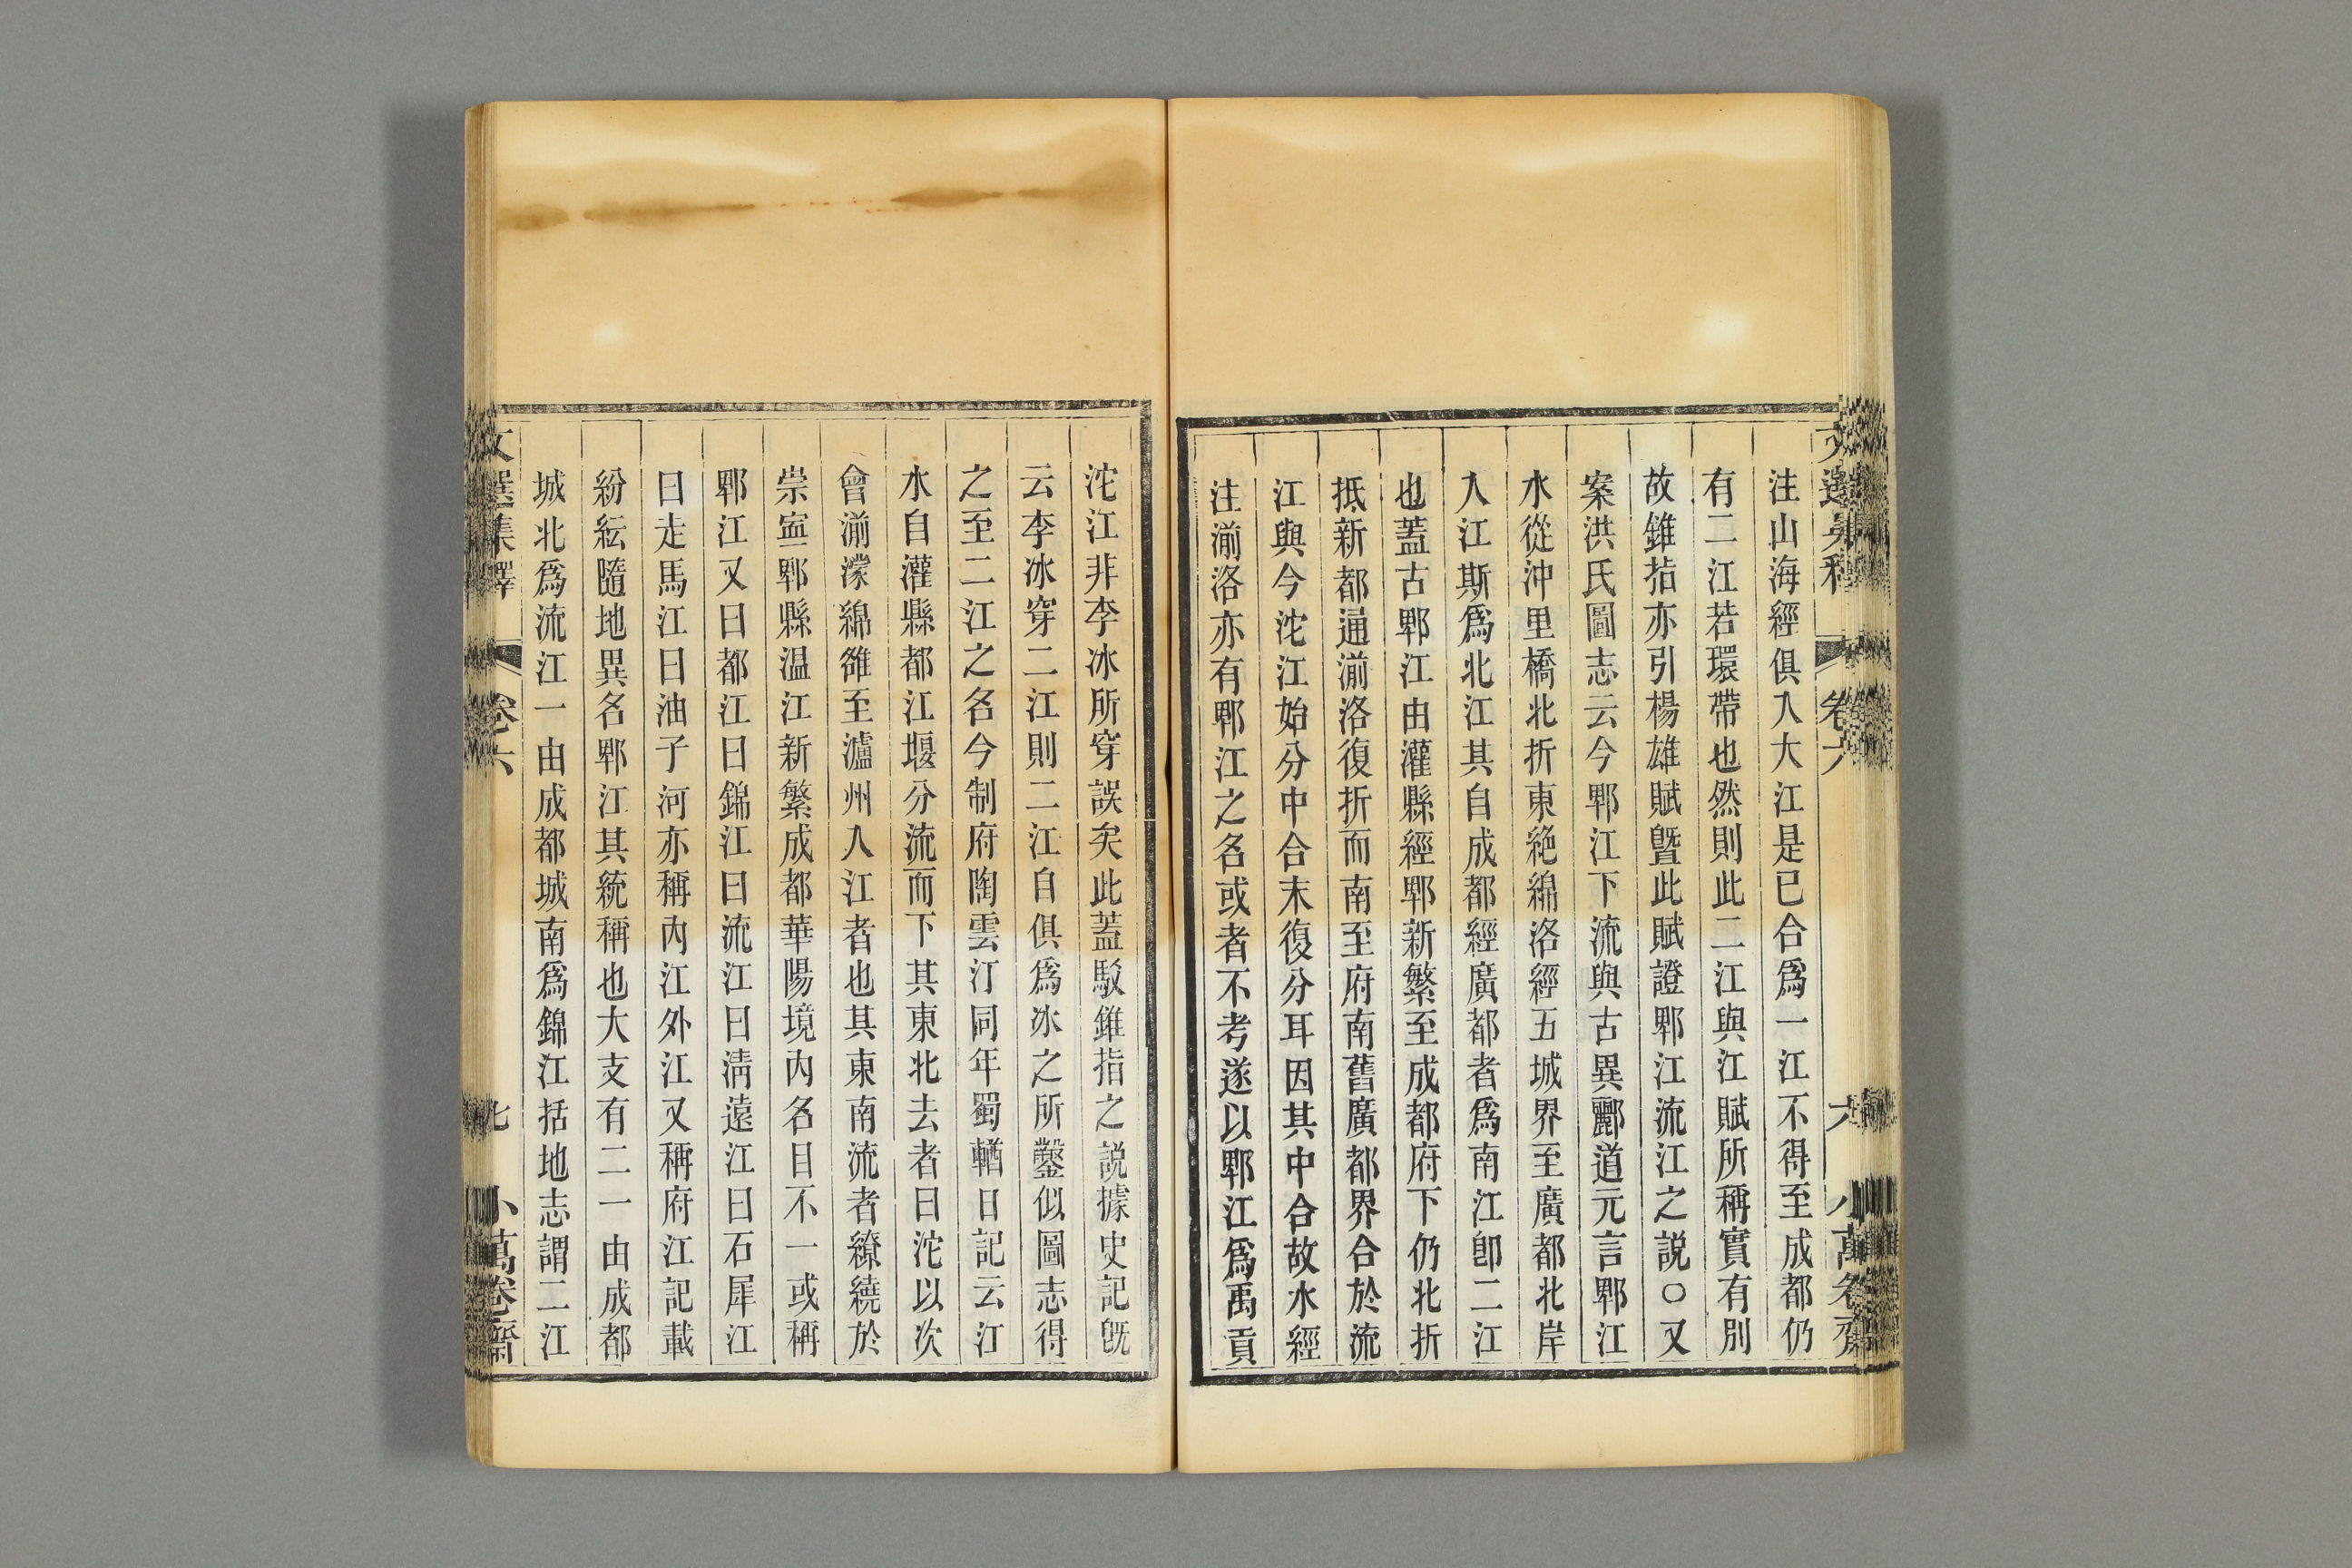 注山海經俱入大江是已合爲一江不得至成都仍
有二江若環帶也然則此二江與江賦所稱實有別
故錐指亦引楊雄賦曁此賦證郫江流江之説○又
案洪氏圖志云今郫江下流與古異酈道元言郫江
水從沖里橋北折東絶綿洛經五城界至廣都北岸
入江斯爲北江其自成都經廣都者爲南江卽二江
也蓋古郫江由灌縣經郫新繁至成都府下仍北折
抵新都通湔洛復折而南至府南舊廣都界合於流
江與今沱江始分中合末復分耳因其中合故水經
注湔洛亦有郫江之名或者不考遂以郫江爲禹貢
沱江非李冰所穿誤矣此蓋駁錐指之説據史記旣
云李冰穿二江則二江自俱爲冰之所鑿似圖志得
之至二江之名今制府陶雲汀同年蜀輶日記云江
水自灌縣都江堰分流而下其東北去者曰沱以次
會湔濛綿雒至瀘州入江者也其東南流者繚繞於
崇寧郫縣温江新繁成都華陽境內名目不一或稱
郫江又曰都江曰錦江曰流江曰淸遠江曰石犀江
曰走馬江曰油子河亦稱內江外江又稱府江記載
紛紜隨地異名郫江其統稱也大支有二一由成都
城北爲流江一由成都城南爲錦江括地志謂二江
文選集釋 卷六 七 小萬卷齋